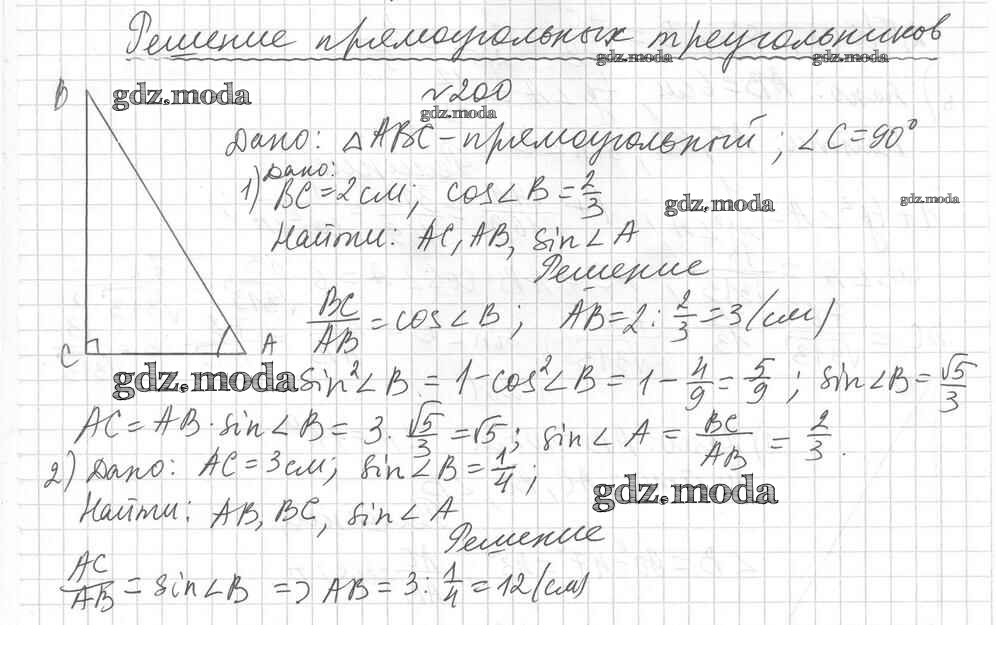 Решение прямоугольных треугольников
gdz.moda gdz.moda
B gdz.moda №200
gdz.moda
Дано: △ABC - прямоугольный; ∠C=90°
1) Дано: BC=2см; cos∠B=2/3
gdz.moda gdz.moda
Найти: AC, AB, sin∠A
Решение
BC/AB=cos∠B; AB=2:2/3=3(см)
C A
gdz.moda sin²∠B=1-cos²∠B=1-4/9=5/9; sin∠B=√5/3
AC=AB·sin∠B=3·√5/3=√5; sin∠A=BC/AB=2/3.
2) Дано: AC=3см; sin∠B=1/4;
gdz.moda
Найти: AB, BC, sin∠A
Решение
AC/AB=sin∠B => AB=3:1/4=12(см)